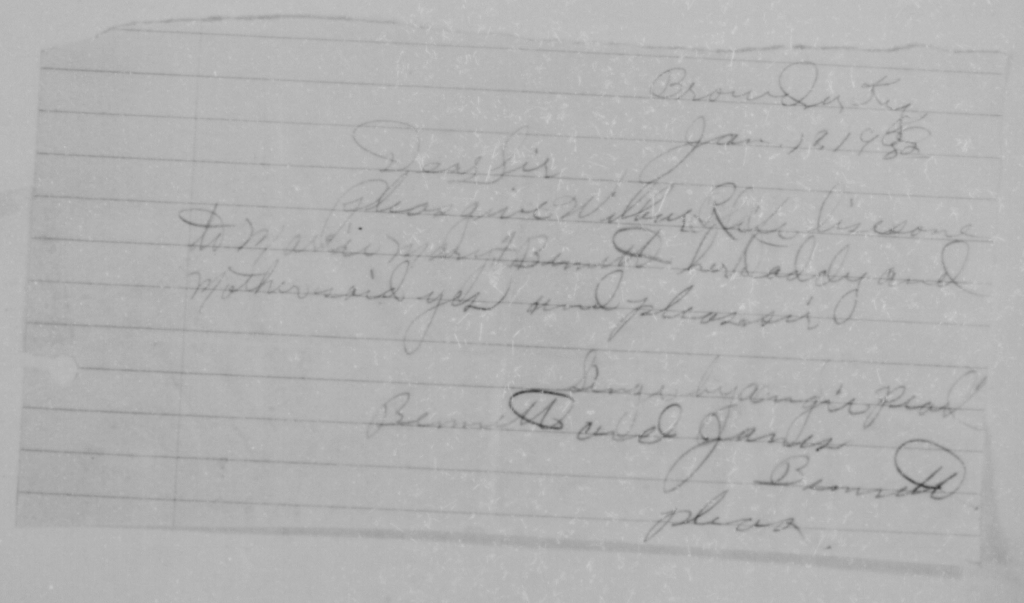 Browder, Ky,
Jan. 12. 1932
Dear Sir
Pleas give Wilbur lisesons
to Marrie Mary Bennett her daddy and
Mother said yes and pleas sir
by angie pearl
Bennett and James
Bennett
pleas.